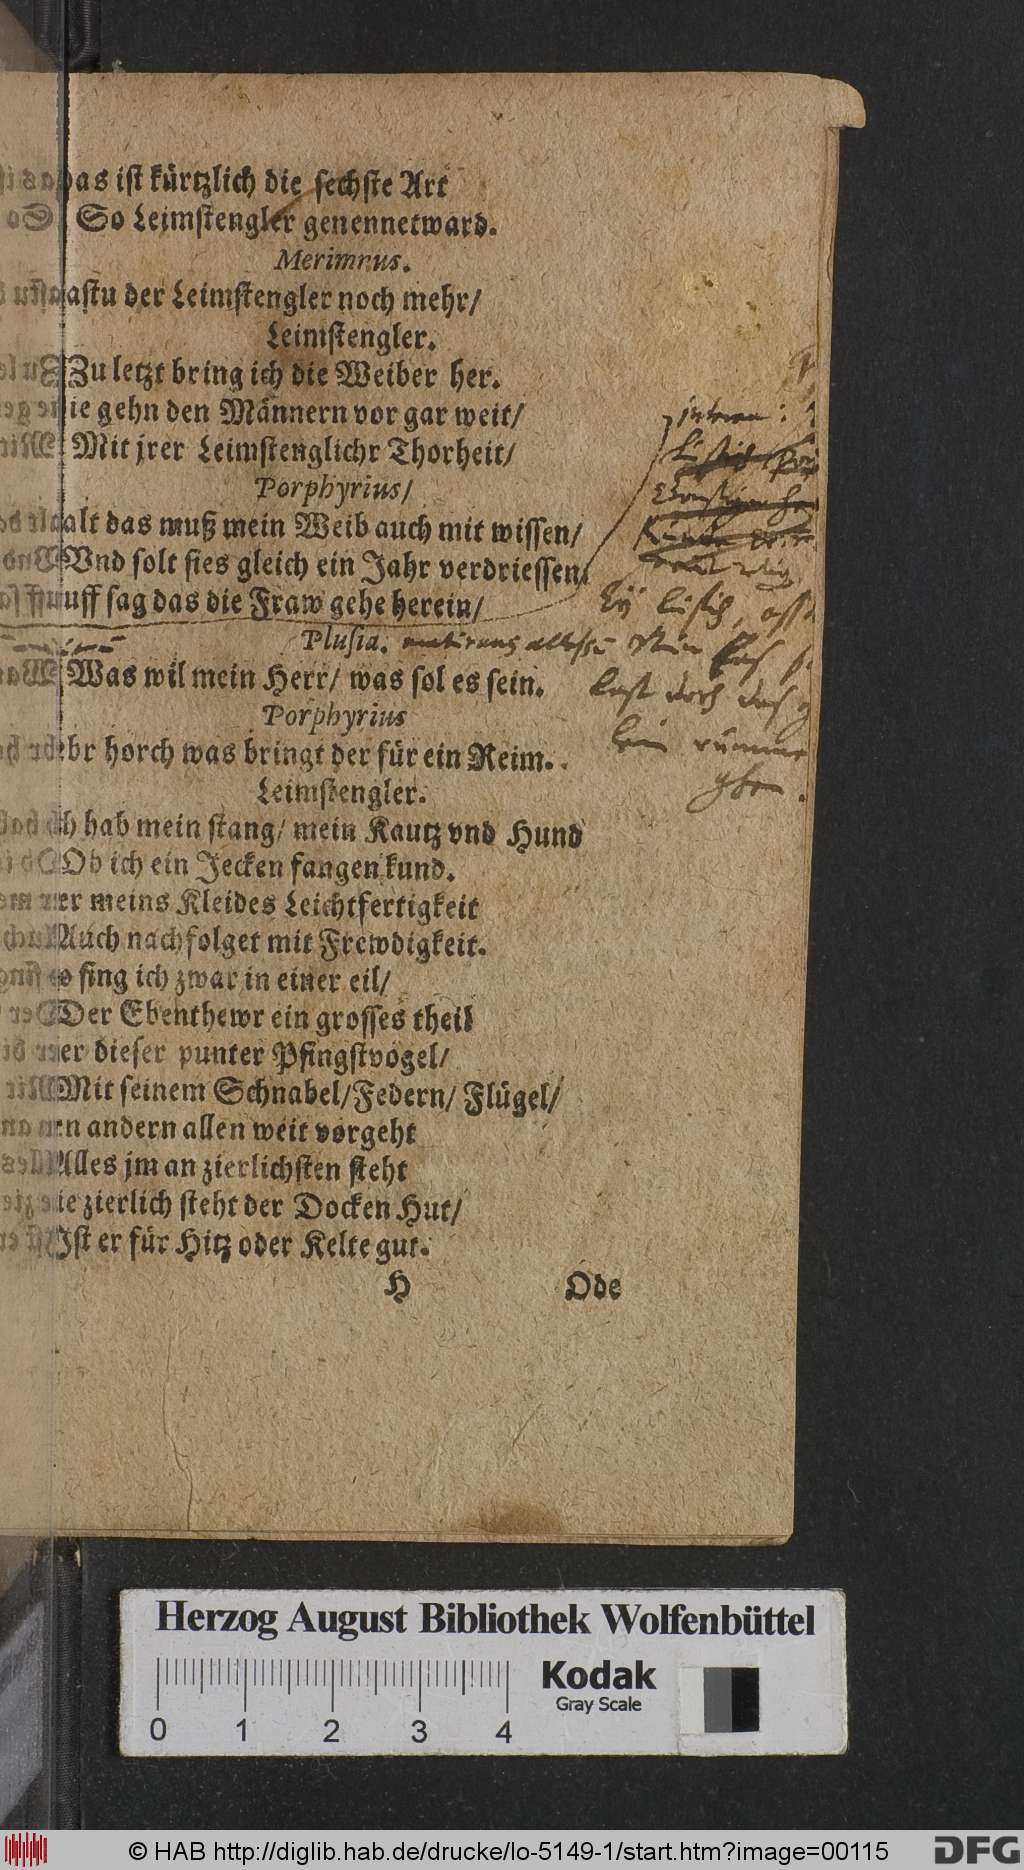 as ist kürtzlich die sechste Art
So Leimstengler genennet ward.
Merimnus.
astu der Leimstengler noch mehr/
Leimstengler.
Zu letzt bring ich die Weiber her.
ie gehn den Männern vor gar weit/
Mit jrer Leimstenglichr Thorheit/
Porphyrius/
alt das muß mein Weib auch mit wissen/
Vnd solt sies gleich ein Jahr verdriessen/
uff sag das die Fraw gehe herein/
Plusia.
Was wil mein Herr/ was sol es sein.
Porphyrius
horch was bringt der für ein Reim.
Leimstengler.
ch hab mein stang/ mein Kautz vnd Hund
Ob ich ein Jecken fangen kund.
er meins Kleides Leichtfertigkeit
Auch nachfolget mit Frewdigkeit.
o sing ich zwar in einer eil/
Der Ebenthewr ein grosses theil
er dieser punter Pfingstvogel/
Mit seinem Schnabel/ Federn/ Flügel/
en andern allen weit vorgeht
Alles jm an zierlichsten steht
ie zierlich steht der Docken Hut/
Ist er für Hitz oder Kelte gut.
H Ode
Herzog August Bibliothek Wolfenbüttel
Kodak
Gray Scale
0 1 2 3 4
© HAB http://diglib.hab.de/drucke/lo-5149-1/start.htm?image=00115
DFG